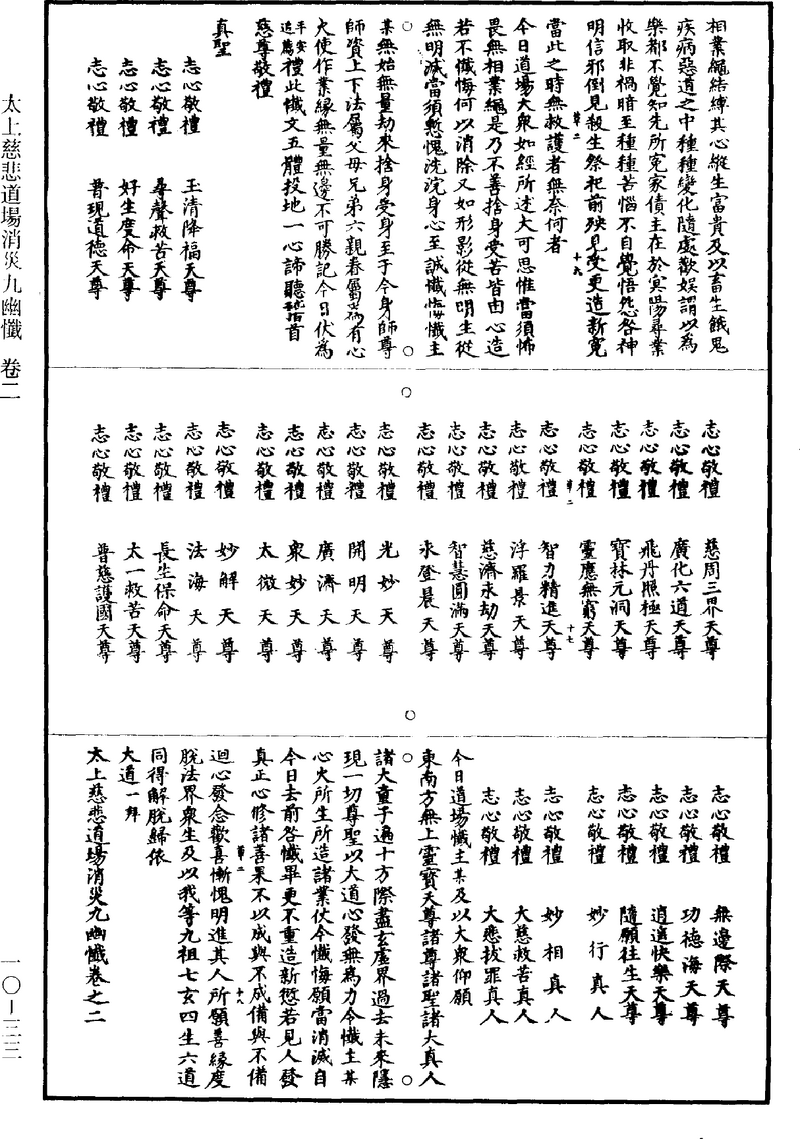 相業繩結縛其心縱生富貴及以畜生餓鬼
疾病惡道之中種種變化隨處歡娛謂以為
樂都不覺知先所寃家債主在於冥陽尋業
收取非禍暗至種種苦惱不自覺悟怨咎神
明信邪倒見殺生祭祀前殃見受更造新寃
當此之時無救護者無奈何者
今日道場大衆如經所述大可思惟當須怖
畏無相業繩是乃不善捨身受苦皆由心造
若不懺悔何以消除又如形影從無明生從
無明滅當須慙愧洗浣身心至誠懺悔懺主
某無始無量劫來捨身受身至于今身師尊
師資上下法屬父母兄弟六親眷屬為有心
大使作業緣無量無邊不可勝記今日伏為
平安追薦禮此懺文五體投地一心諦聽稽首
慈尊敬禮
真聖
志心敬禮 玉清降福天尊
志心敬禮 尋聲救苦天尊
志心敬禮 好生度命天尊
志心敬禮 普現道德天尊
志心敬禮 慈周三界天尊
志心敬禮 廣化六道天尊
志心敬禮 飛丹照極天尊
志心敬禮 寶林元洞天尊
志心敬禮 靈應無窮天尊
志心敬禮 智力精進天尊
志心敬禮 浮羅景天尊
志心敬禮 慈濟永劫天尊
志心敬禮 智慧圓滿天尊
志心敬禮 永登晨天尊
志心敬禮 光妙天尊
志心敬禮 開明天尊
志心敬禮 廣濟天尊
志心敬禮 衆妙天尊
志心敬禮 太微天尊
志心敬禮 妙解天尊
志心敬禮 法海天尊
志心敬禮 長生保命天尊
志心敬禮 太一救苦天尊
志心敬禮 普慈護國天尊
志心敬禮 無邊際天尊
志心敬禮 功德海天尊
志心敬禮 逍遙快樂天尊
志心敬禮 隨願往生天尊
志心敬禮 妙行真人
志心敬禮 妙相真人
志心敬禮 大慈救苦真人
志心敬禮 大悲拔罪真人
今日道場懺主某及以大衆仰願
東南方無上靈寶天尊諸尊諸聖諸大真人
諸大童子遍十方際盡玄虛界過去未來隱
現一切尊聖以大道心發無為力令懺主某
心火所生所造諸業仗今懺悔願當消滅自
今日去前咎懺畢更不重造新愆若見人發
真正心修諸善果不以成與不成備與不備
迴心發念歡喜慚愧明進其人所願善緣度
脫法界衆生及以我等九祖七玄四生六道
同得解脫歸依
大道一拜
太上慈悲道場消災九幽懺卷之二
太上慈悲道場消災九幽懺 卷二
一〇—三三